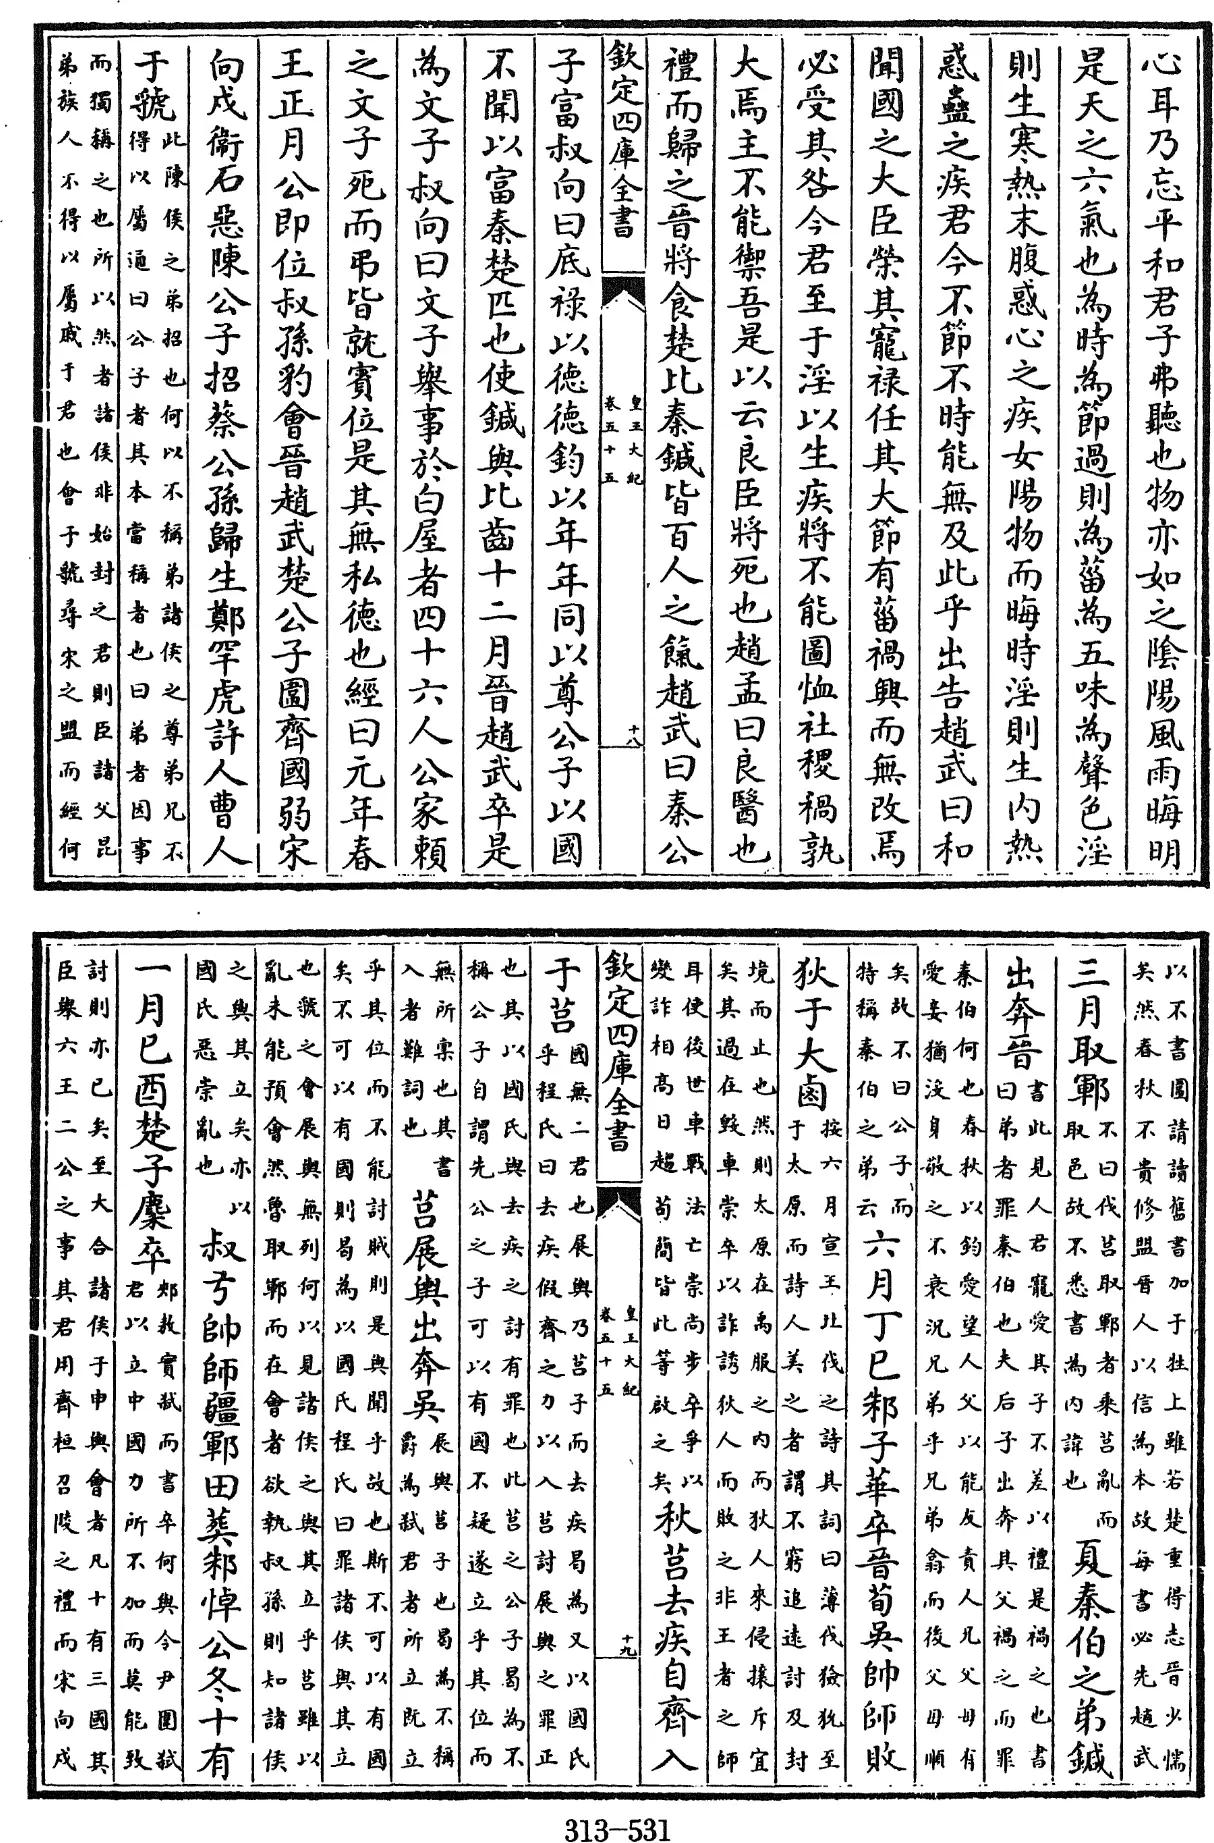 心耳乃忘平和君子弗聽也物亦如之陰陽風雨晦明
是天之六氣也為時為節過則為菑為五味為聲色淫
則生寒熱末腹惑心之疾女陽物而晦時淫則生内熱
惑蠱之疾君今不節不時能無及此乎出告趙武曰和
聞國之大臣榮其寵禄任其大節有菑禍興而無改焉
必受其咎今君至于淫以生疾將不能圖恤社稷禍孰
大焉主不能禦吾是以云良臣將死也趙孟曰良醫也
禮而歸之晉將食楚比秦鍼皆百人之餼趙武曰秦公
欽定四庫全書
皇王大紀
卷五十五
十八
子富叔向曰底禄以德德鈞以年年同以尊公子以國
不聞以富秦楚匹也使鍼與比齒十二月晉趙武卒是
為文子叔向曰文子舉事於白屋者四十六人公家賴
之文子死而弔皆就賓位是其無私德也經曰元年春
王正月公即位叔孫豹會晉趙武楚公子圍齊國弱宋
向戌衛石惡陳公子招蔡公孫歸生鄭罕虎許人曹人
于虢
此陳侯之弟招也何以不稱弟諸侯之尊弟兄不
得以屬通曰公子者其本當稱者也曰弟者因事
而獨稱之也所以然者諸侯非始封之君則臣諸父昆
弟族人不得以屬戚于君也會于虢尋宋之盟而經何
以不書圍請讀舊書加于牲上雖若楚重得志晉少懦
矣然春秋不貴修盟晉人以信為本故每書必先趙武
三月取鄆
不曰伐莒取鄆者乗莒亂而
取邑故不悉書為内諱也
夏秦伯之弟鍼
出奔晉
書此見人君寵愛其子不差以禮是禍之也書
曰弟者罪秦伯也夫后子出奔其父禍之而罪
秦伯何也春秋以鈞愛望人父以能友責人兄父母有
愛妾猶沒身敬之不衰況兄弟乎兄弟翕而後父母順
矣故不曰公子而
特稱秦伯之弟云
六月丁巳邾子華卒晉荀吳帥師敗
狄于大鹵
按六月宣王北伐之詩其詞曰薄伐獫狁至
于太原而詩人美之者謂不窮追逺討及封
境而止也然則太原在禹服之内而狄人來侵攘斥宜
矣其過在毀車崇卒以詐誘狄人而敗之非王者之師
耳使後世車戰法亡崇尚步卒爭以
變詐相高日趨茍簡皆此等啟之矣
秋莒去疾自齊入
欽定四庫全書
皇王大紀
卷五十五
十九
于莒
國無二君也展輿乃莒子而去疾曷為又以國氏
乎程氏曰去疾假齊之力以入莒討展輿之罪正
也其以國氏與去疾之討有罪也此莒之公子曷為不
稱公子自謂先公之子可以有國不疑遂立乎其位而
無所稟也其書
入者難詞也
莒展輿出奔吳
展輿莒子也曷為不稱
爵為弒君者所立既立
乎其位而不能討賊則是與聞乎故也斯不可以有國
矣不可以有國則曷為以國氏程氏曰罪諸侯與其立
也虢之會展輿無列何以見諸侯之與其立乎莒雖以
亂未能預會然魯取鄆而在會者欲執叔孫則知諸侯
之與其立矣亦以
國氏惡崇亂也
叔弓帥師疆鄆田葬邾悼公冬十有
一月已酉楚子麇卒
郟敖實弒而書卒何與令尹圍弒
君以立中國力所不加而莫能致
討則亦已矣至大合諸侯于申與會者凡十有三國其
臣舉六王二公之事其君用齊桓召陵之禮而宋向戌
313-531